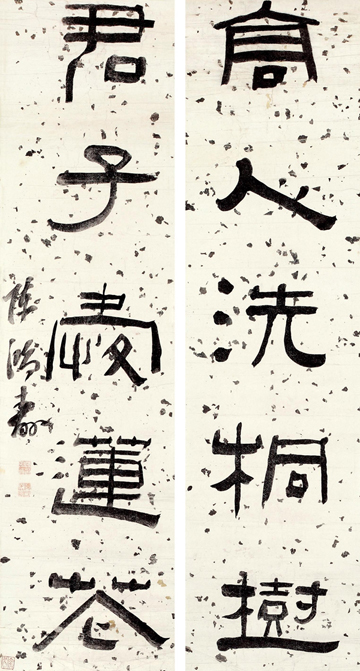 高人洗桐樹
君子愛蓮花
陳鴻壽